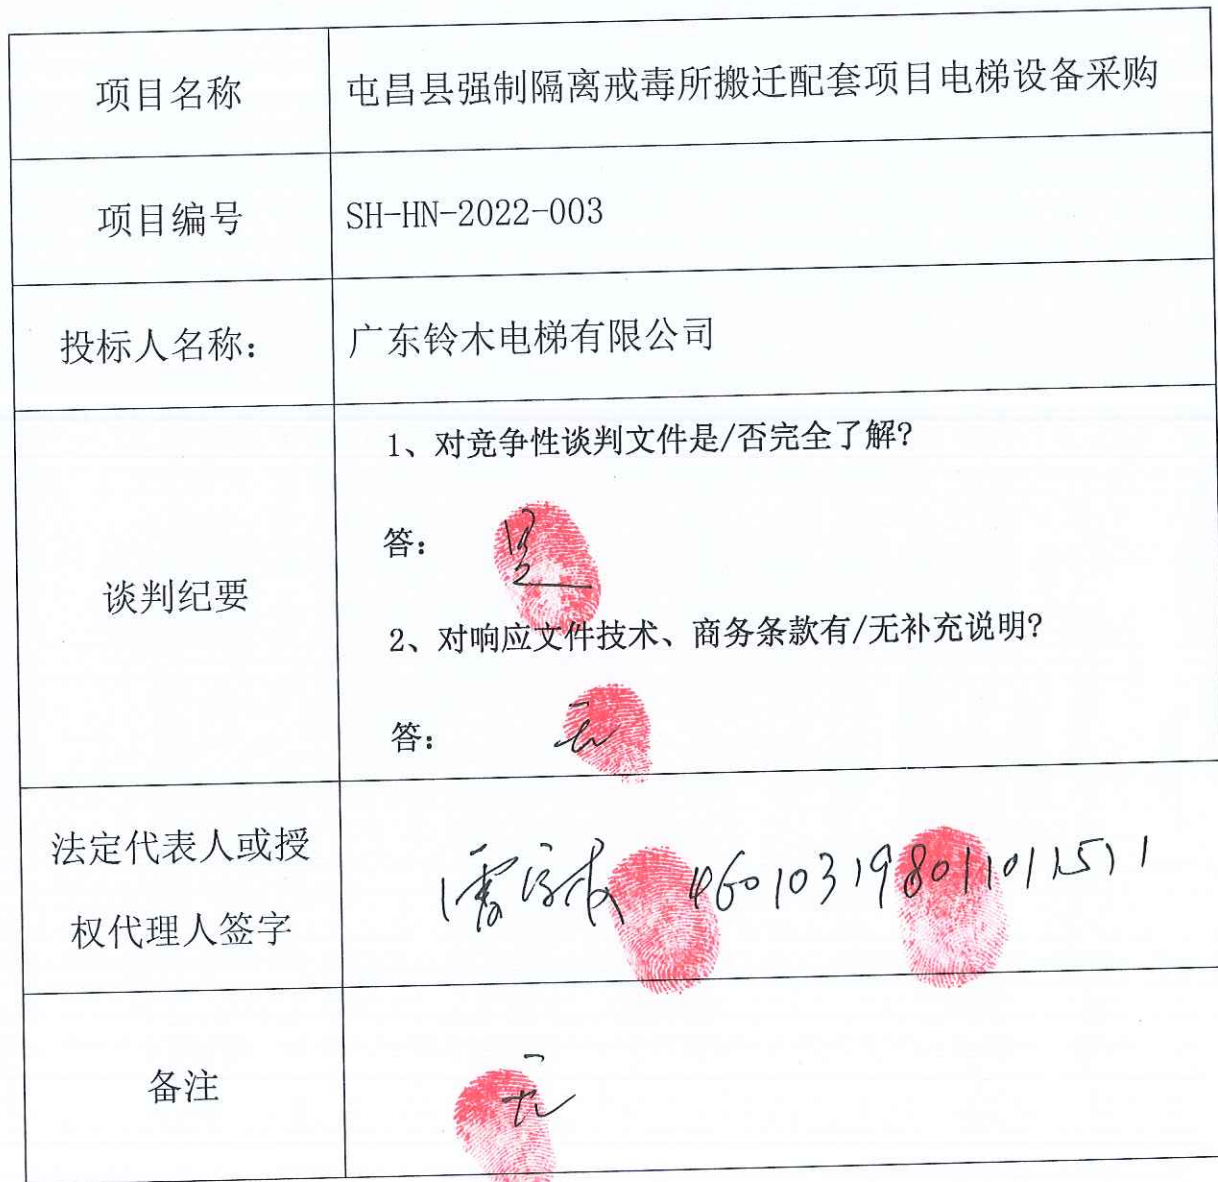 项目名称
屯昌县强制隔离戒毒所搬迁配套项目电梯设备采购
项目编号
SH-HN-2022-003
投标人名称：
广东铃木电梯有限公司
谈判纪要
1、对竞争性谈判文件是/否完全了解？
答： 是
2、对响应文件技术、商务条款有/无补充说明？
答： 无
法定代表人或授
权代理人签字
460103198011011511
备注
无